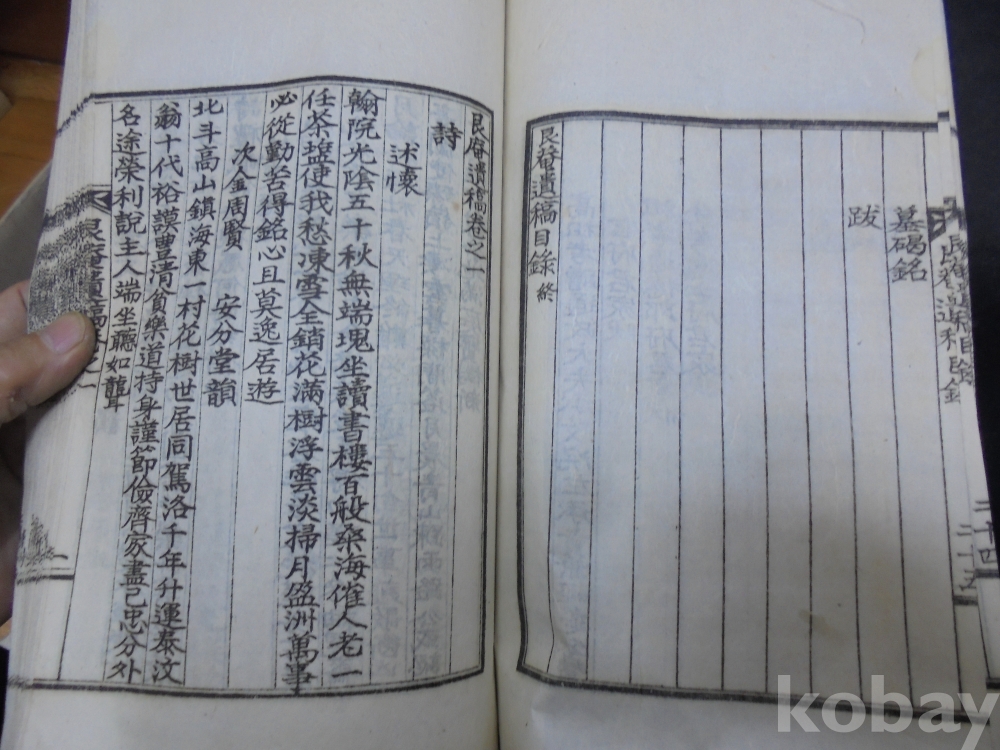 墓碣銘
跋
艮庵遺稿目錄 終
艮庵遺稿卷之一
詩
述懷
翰院光陰五十秋無端塊坐讀書樓百般桑海催人老一
任茶塩使我愁凍雪全銷花滿樹浮雲淡掃月盈洲萬事
必從勤苦得銘心且莫逸居遊
次金周賢 安分堂韻
北斗高山鎮海東一村花樹世居同駕洛千年升運泰汶
翁十代裕謨豊清貧樂道持身謹節儉齊家盡己忠分外
名途榮利說主人端坐聽如聾
二十四
二十五
kobay